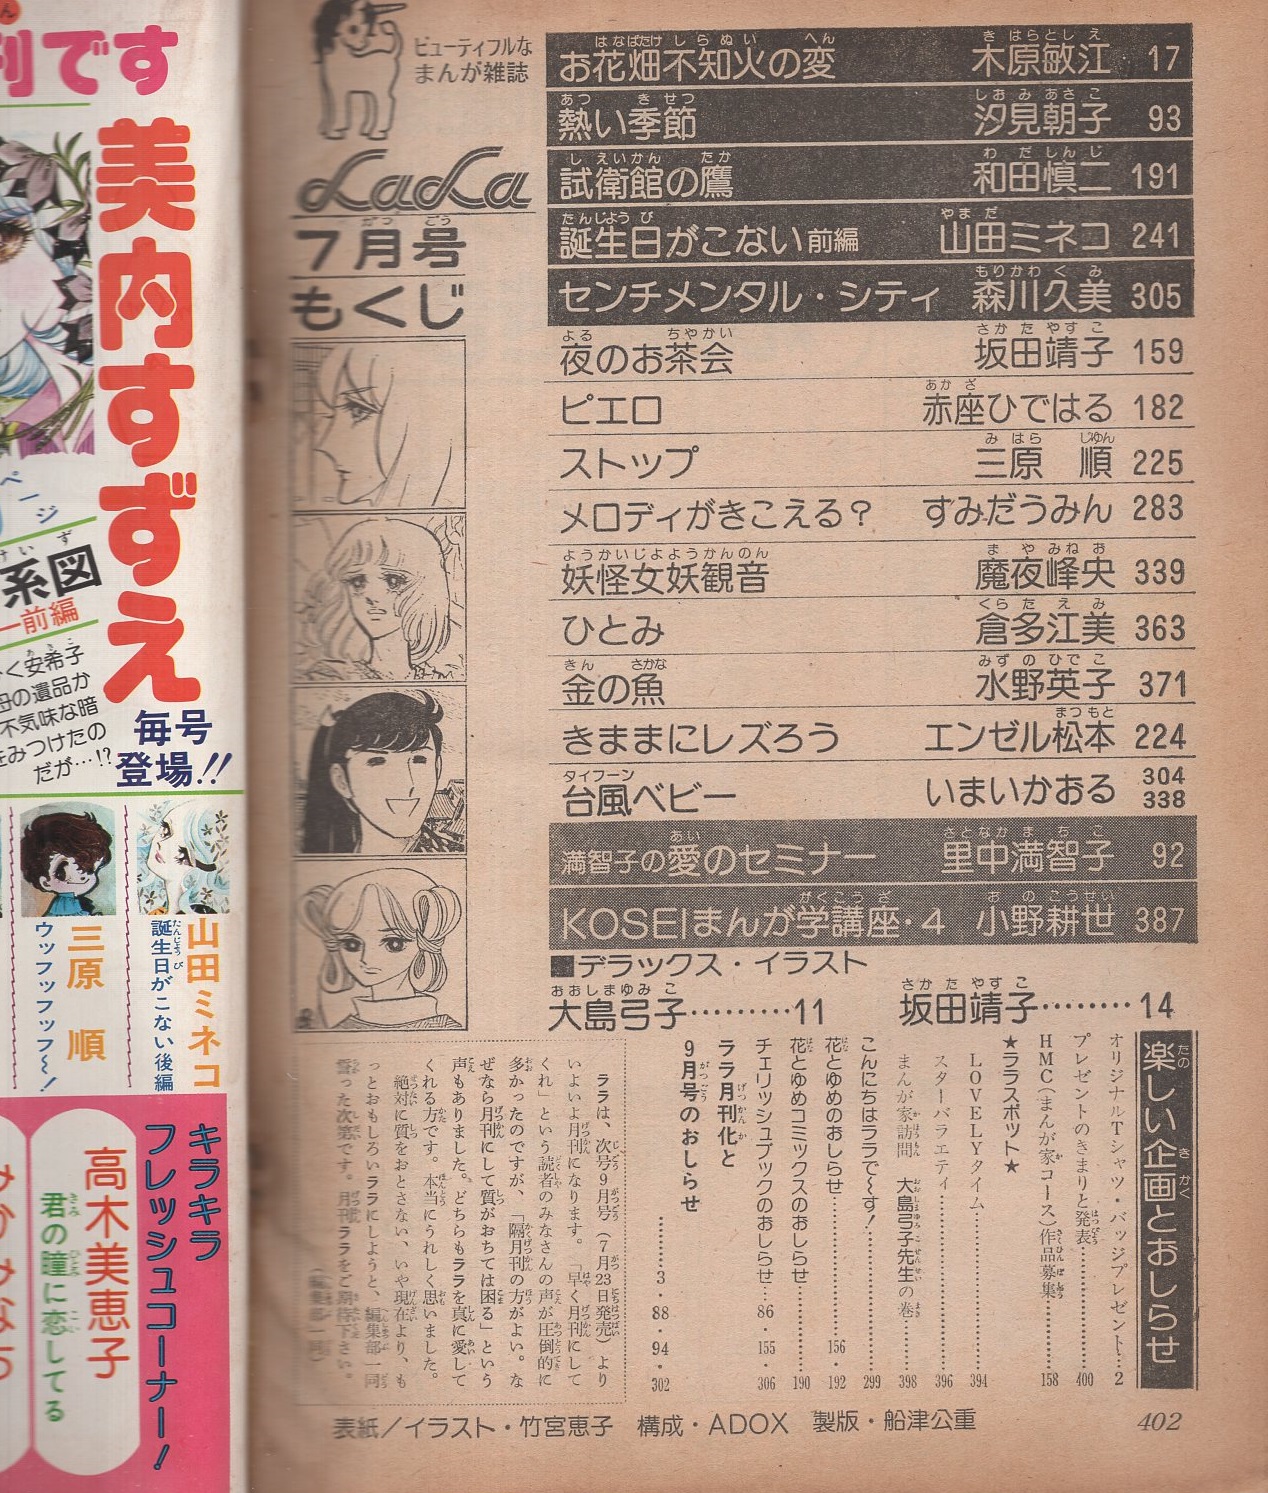 ビューティフルな
まんが雑誌
LaLa
7月号
もくじ
お花畑不知火の変 木原敏江 17
熱い季節 汐見朝子 93
試衛館の鷹 和田慎二 191
誕生日がこない 前編 山田ミネコ 241
センチメンタル・シティ 森川久美 305
夜のお茶会 坂田靖子 159
ピエロ 赤座ひではる 182
ストップ 三原 順 225
メロディがきこえる? すみだうみん 283
妖怪女妖観音 魔夜峰央 339
ひとみ 倉多江美 363
金の魚 水野英子 371
きままにレズろう エンゼル松本 224
台風ベビー いまいかおる 304 338
満智子の愛のセミナー 里中満智子 92
KOSEIまんが学講座・4 小野耕世 387
■デラックス・イラスト
大島弓子………11
坂田靖子………14
楽しい企画とおしらせ
オリジナルTシャツ・バッジプレゼント…2
プレゼントのきまりと発表………400
HMC(まんが家コース)作品募集………158
★ララスポット★
LOVELYタイム………394
スターバラエティ………396
まんが家訪問 大島弓子先生の巻………398
こんにちはララで〜す!………299
花とゆめのおしらせ………156・192
花とゆめコミックスのおしらせ………190
チェリッシュブックのおしらせ…86・155・306
ララ月刊化と
9月号のおしらせ………3・88・94・302
ララは、次号9月号(7月23日発売)より
いよいよ月刊になります。「早く月刊にして
くれ」という読者のみなさんの声が圧倒的に
多かったのですが、「隔月刊の方がよい。な
ぜなら月刊にして質がおちては困る」という
声もありました。どちらもララを真に愛して
くれる方です。本当にうれしく思いました。
絶対に質をおとさない、いや現在より、も
っとおもしろいララにしようと、編集部一同
誓った次第です。月刊ララをご期待下さい。
(編集部一同)
表紙/イラスト・竹宮恵子 構成・ADOX 製版・船津公重
402
刊です
美内すずえ
毎号
登場!!
ページ
系図
前編
く安希子
母の遺品か
不気味な暗
をみつけたの
だが…!?
山田ミネコ
誕生日がこない後編
三原 順
ウッフッフッフ〜!
キラキラ
フレッシュコーナー!
高木美恵子
君の瞳に恋してる